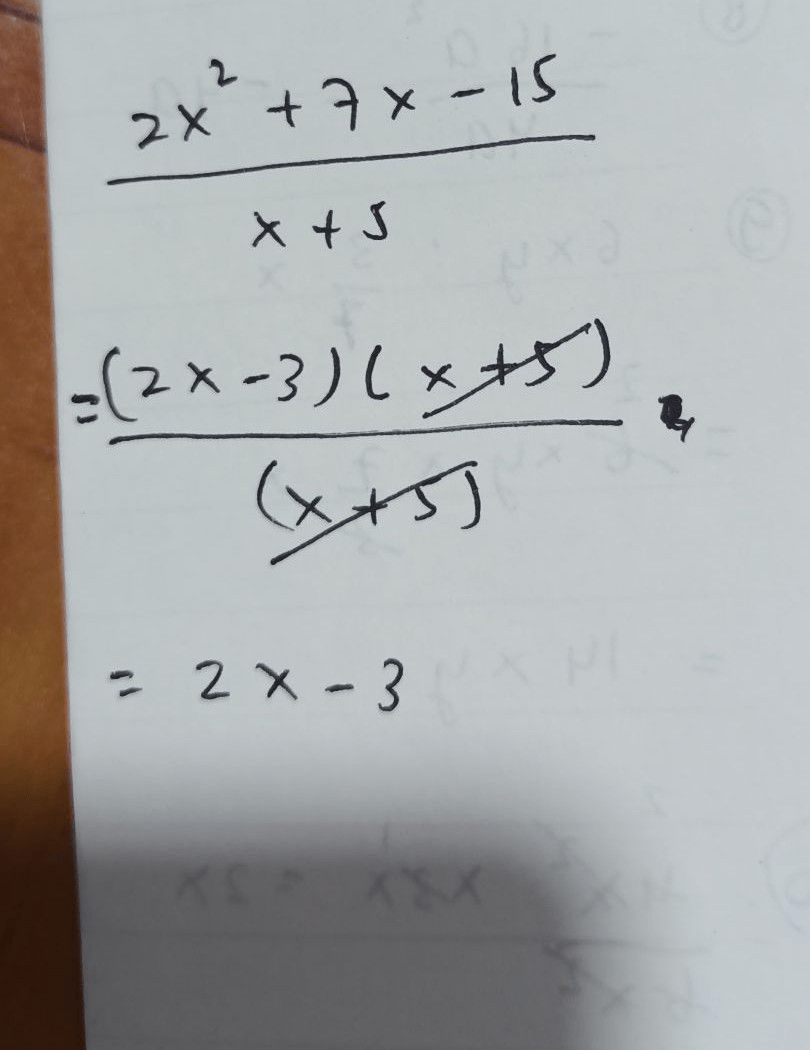 2x² + 7x - 15
x + 5
= (2x - 3)(x + 5)
(x + 5)
= 2x - 3